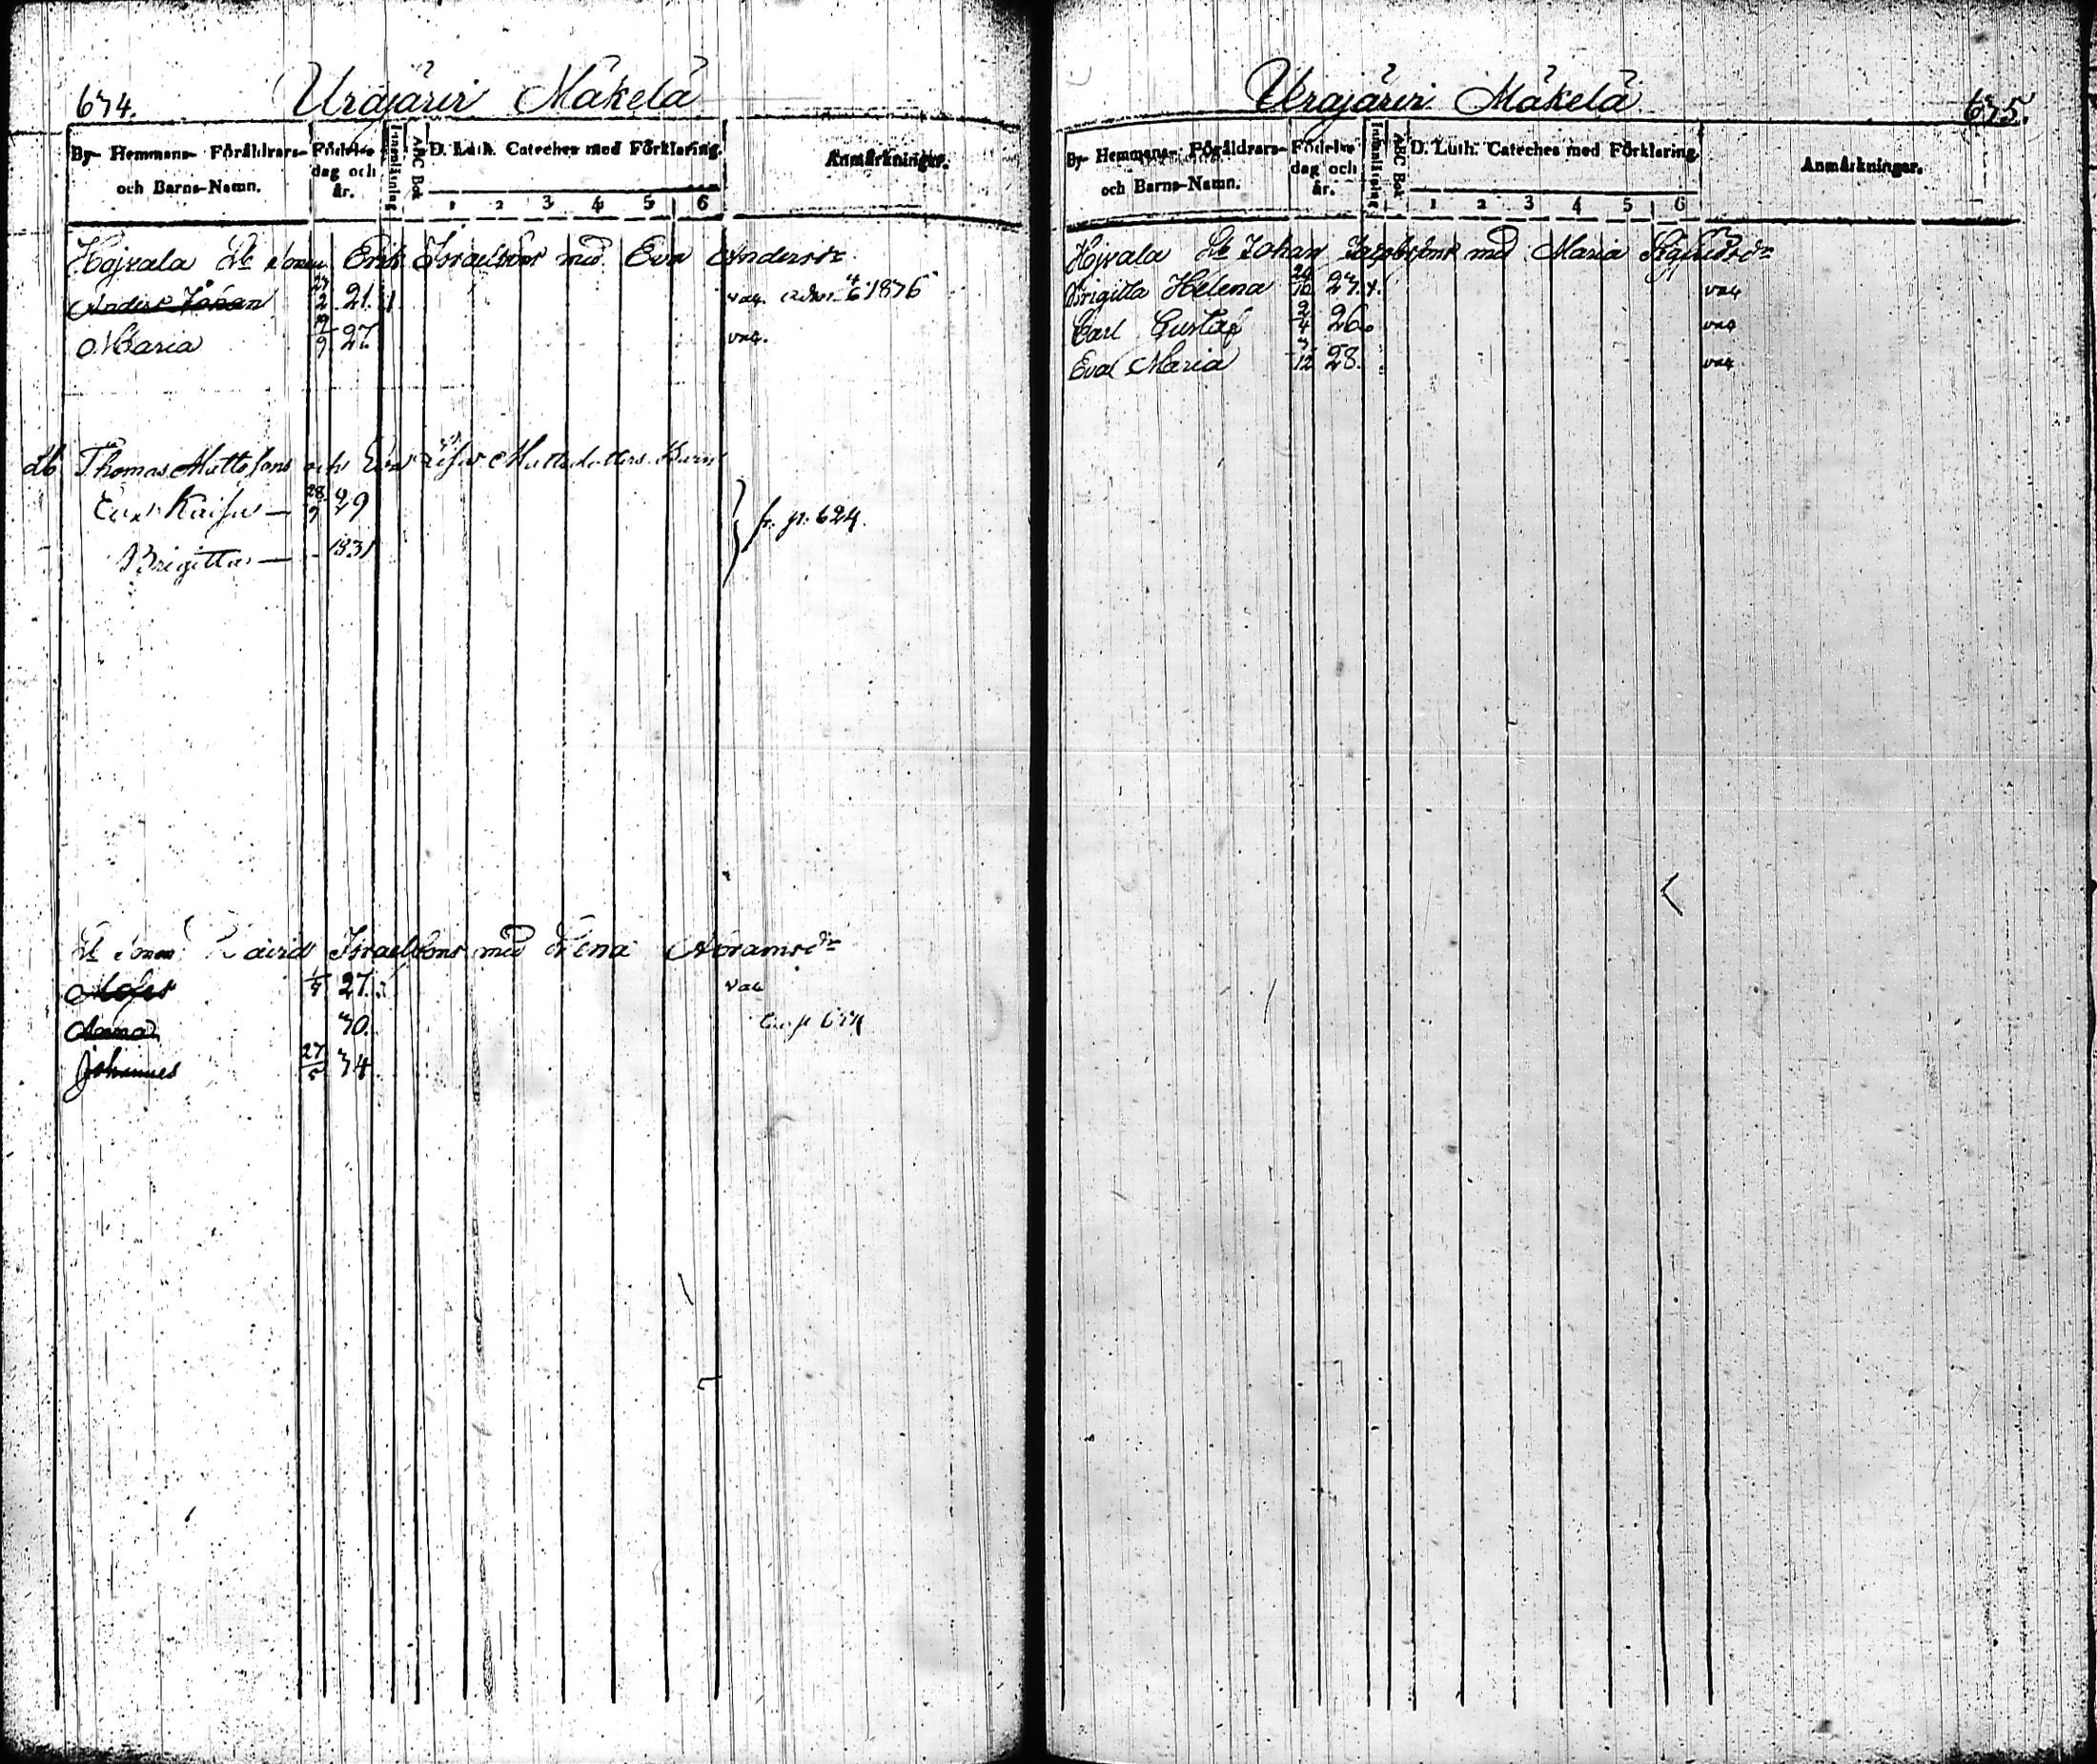 674. Urajärvi Mäkelä
By- Hemmans- Föräldrars- och Barns-Namn. Födelse dag och år. Innanläsning ABC Bok D. Luth. Cateches med Förklaring. 1 2 3 4 5 6 Anmärkningar.
Hojvala Erik Israelsons med Eva Andersdr
Anders Johan 2 21. vac. 4/6 1836
Maria 19/9 27. vac.
db Thomas Mattssons och Eva Mattsdotters Barn
Eva Kaisa — 28/9 29 fr. p. 624.
Brigitta — 1831
David Israelsons med Lena Abramsdr
Moses 27. vac
Anna 30.
Johannes 27/5 34
Urajärvi Mäkelä 675.
By- Hemmans- Föräldrars- och Barns-Namn. Födelse dag och år. Innanläsning ABC Bok D. Luth. Cateches med Förklaring. 1 2 3 4 5 6 Anmärkningar.
Hojvala Johan Jacobsons med Maria Sigfridsdr
Brigitta Helena 24/10 23. vac
Carl Gustaf 2/4 26. vac
Eva Maria 12 28. vac